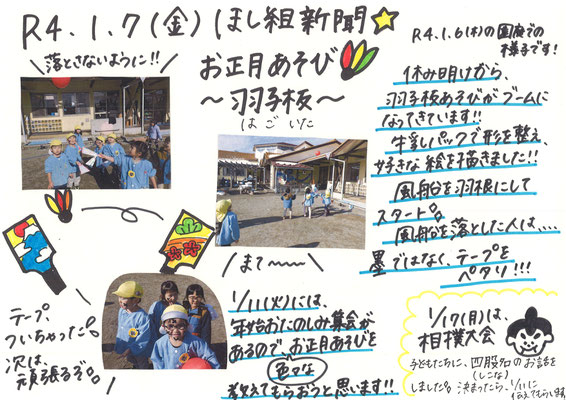 R4.1.7(金)ほし組新聞☆
R4.1.6(木)の園庭での
様子です!
落とさないように!!
お正月あそび
〜羽子板〜
はごいた
休み明けから、
羽子板あそびがブームに
なってきています!!
牛乳パックで形を整え、
好きな絵を描きました!!
風船を羽根にして
スタート。
風船を落とした人は、…
墨ではなく、テープを
ペタリ!!!
まて〜〜
テープ、
ついちゃった。
次は、
頑張るぞ。
1/11(火)には、
年始おたのしみ集会が
あるので、お正月あそびを
色々な
教えてもらおうと思います!!
1/17(月)は、
相撲大会
子どもたちに、四股名のお話を
(しこな)
しました。決まったら、1/11に
伝えてもらいます